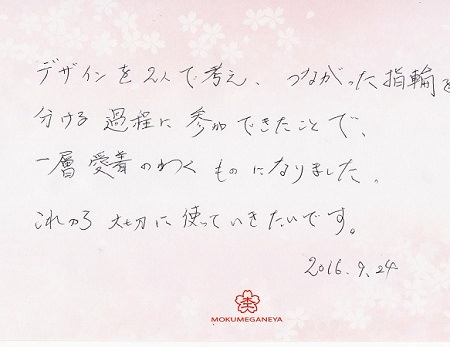 デザインを2人で考え、つながった指輪を
分ける過程に参加できたことで、
一層愛着のわくものになりました。
これから大切に使っていきたいです。
2016.9.24
MOKUMEGANEYA